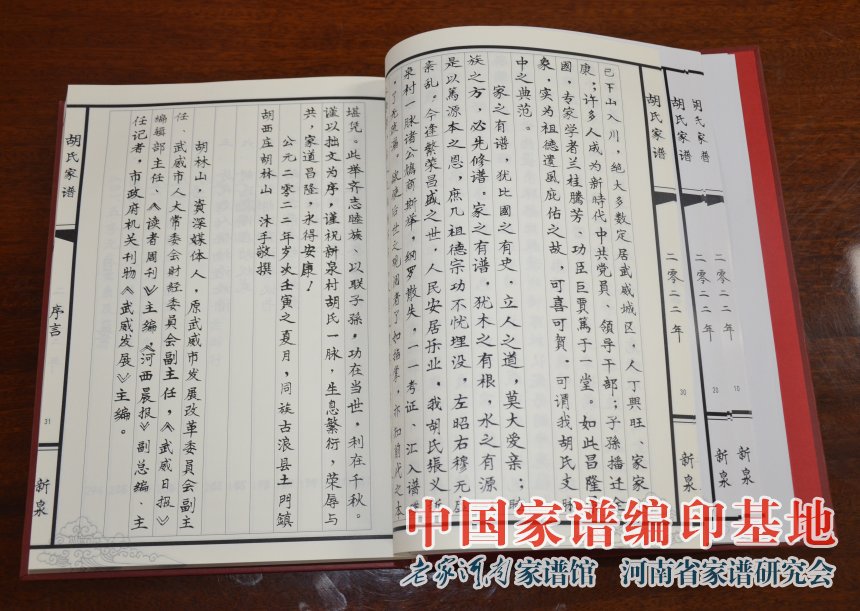 胡氏家谱
胡氏家谱
胡氏家谱
二零二二年
二零二二年
二零二二年
10
20
30
新泉
新泉
已下山入川，绝大多数定居武威城区，人丁興旺、家家
康；许多人成为新時代中共党员、领导干部；子孫播迁全
國，专家学者兰桂騰芳、功臣巨賈萬于一堂。如此昌隆
象，实为祖德遺風庇佑之故，可喜可賀，可谓我胡氏文脉
中之典范。
家之有谱，犹比國之有史，立人之道，莫大爱亲；
族之方，必先修谱。家之有谱，犹木之有根，水之有源
是以篤源本之恩，庶几祖德宗功不忧埋没，左昭右穆无
紊乱。今逢繁荣昌盛之世，人民安居乐业，我胡氏張义新
泉村一脉诸公偹斋斯举，纲罗散失，一一考证、汇入谱牒
堪凭。此举齐志睦族、以联子孫，功在当世，利在千秋。
谨以拙文为序，谨祝新泉村胡氏一脉，生息繁衍，荣辱与
共，家道昌隆，永得安康！
公元二零二二年岁次壬寅之夏月，同族古浪县土門鎮
胡西庄胡林山 沐手敬撰
胡林山，資深媒体人，原武威市发展改革委员会副主
任、武威市人大常委会财经委员会副主任，《武威日报》
编辑部主任、《读者周刊》主编，《河西晨报》副总编、主
任记者，市政府机关刊物《武威发展》主编。
胡氏家谱
序言
31
新泉
中国家谱编印基地
老家河南家谱馆 河南省家谱研究会